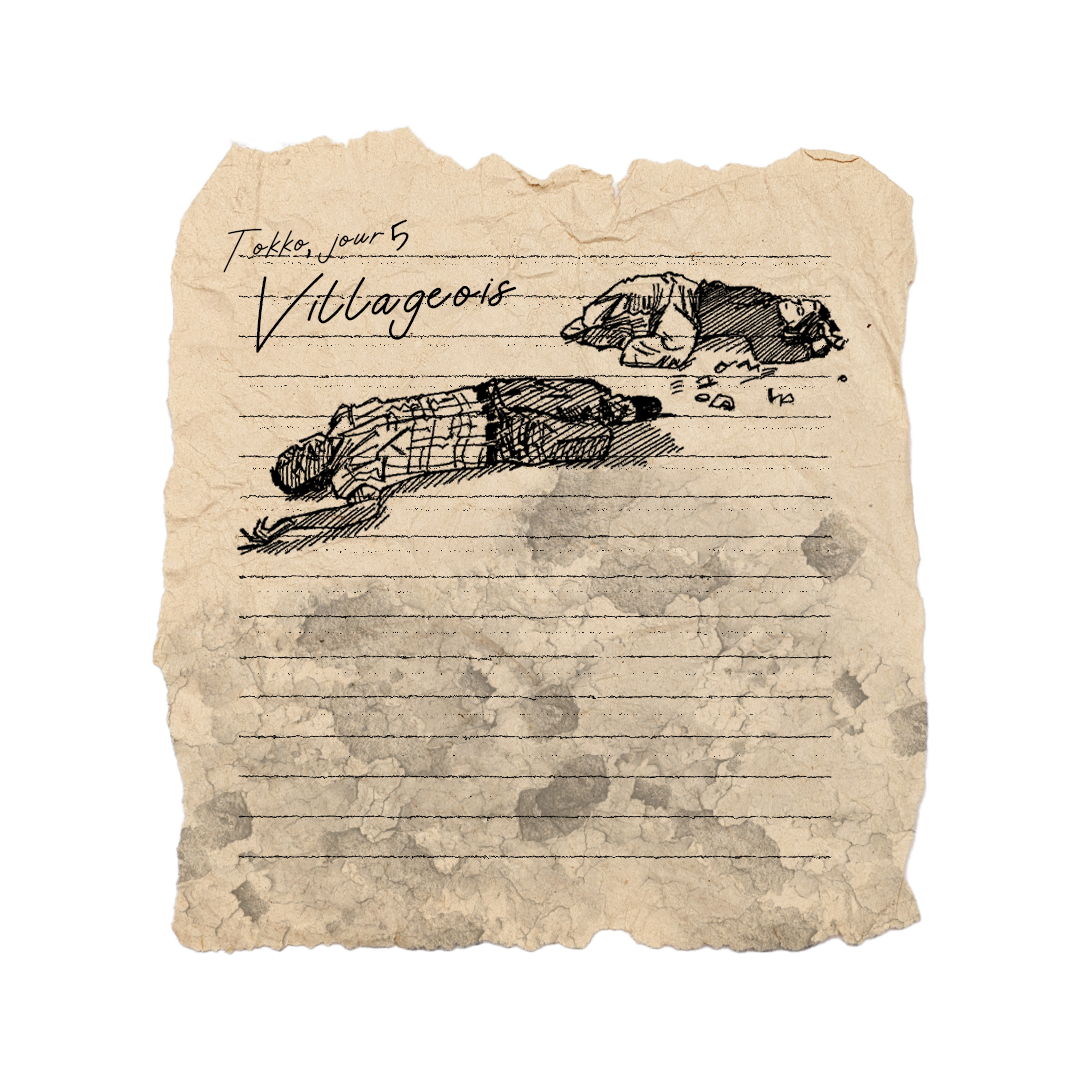 Tokko, jour 5
Villageois